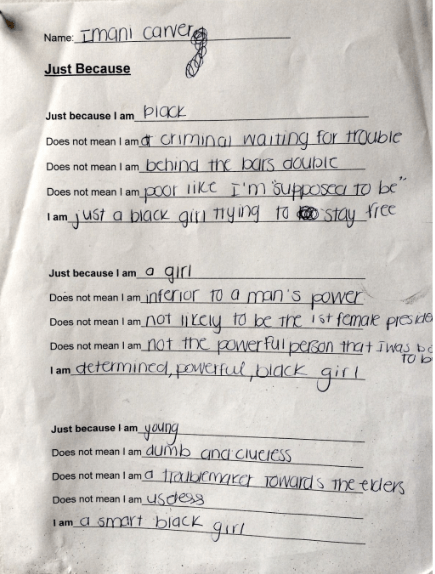 Name: Imani Carver
Just Because
Just because I am black
Does not mean I am a criminal waiting for trouble
Does not mean I am behind the bars double
Does not mean I am poor like I'm "supposed to be"
I am just a black girl trying to stay free
Just because I am a girl
Does not mean I am inferior to a man's power
Does not mean I am not likely to be the 1st female preside
Does not mean I am not the powerful person that I was bo
to b
I am determined, powerful, black girl
Just because I am young
Does not mean I am dumb and clueless
Does not mean I am a troublemaker towards the elders
Does not mean I am useless
I am a smart black girl